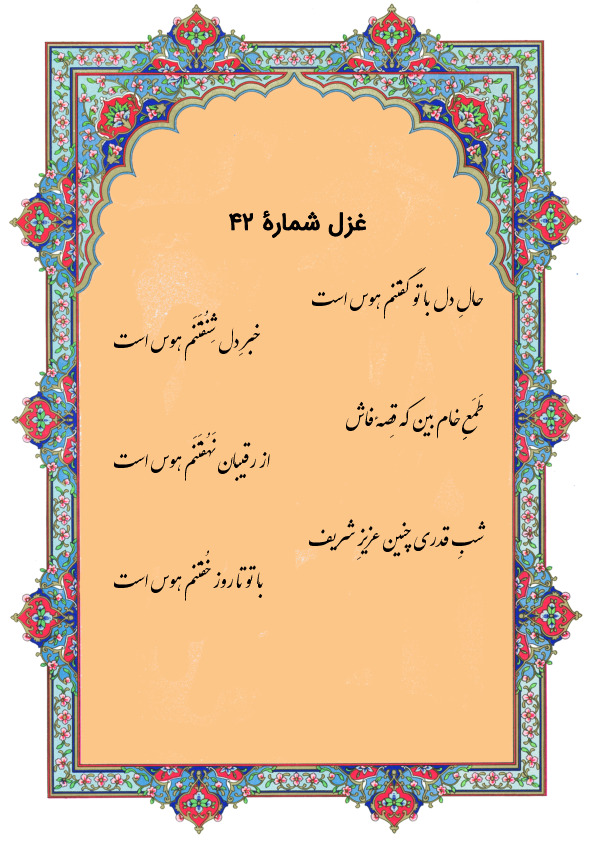 غزل شمارهٔ ۴۲
حالِ دل با تو گفتنم هوس است
خبرِ دل شِنُفتَنَم هوس است
طَمَعِ خام بین که قِصهٔ فاش
از رقیبان نَهُفتَنَم هوس است
شبِ قدری چنین عزیزِ شریف
با تو تا روز خُفتنم هوس است